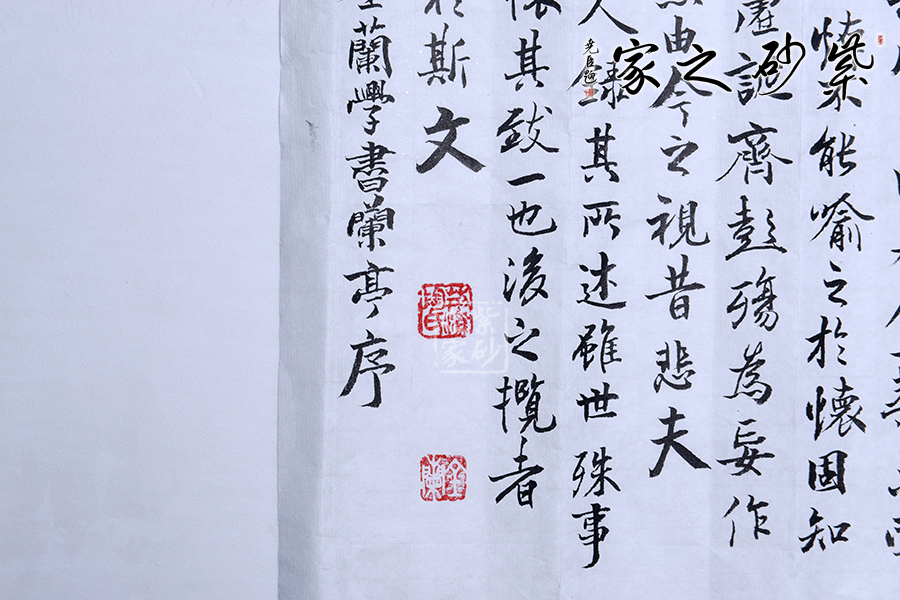 紫砂之家
能喻之於懷固知
虛誕齊彭殤為妄作
由今之視昔悲夫
人錄其所述雖世殊事
懷其致一也後之攬者
於斯文
蘭學書蘭亭序
紫砂家
金蘭